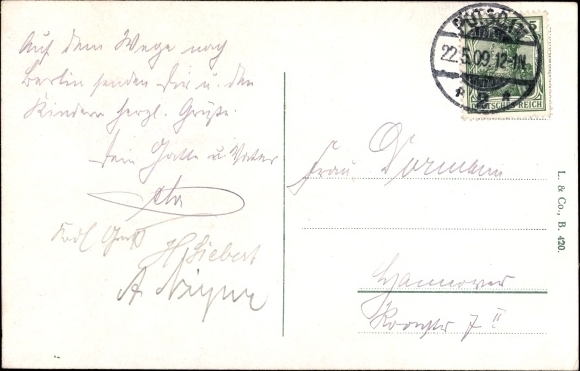 Auf dem Wege nach
Berlin senden Dir u. den
Kindern herzl. Grüße.
Dein Gatte u. Vater
Otto
Frdl. Gruß
H Siebert
A
POTSDAM
22.5.09. 12-1N.
5
DEUTSCHES REICH
Frau Dormann
Hannover
Roonstr 7 II
L. & Co., B. 420.